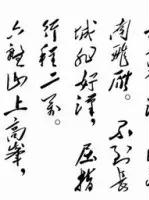 南飛雁。不到長
城非好漢，屈指
行程二萬。
六盤山上高峯，